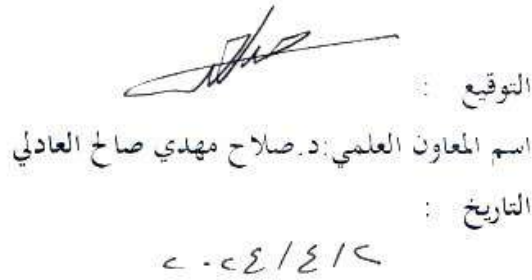 التوقيع :
اسم المعاون العلمي:د.صلاح مهدي صالح العادلي
التاريخ :
٢٠٢٤/٤/٢